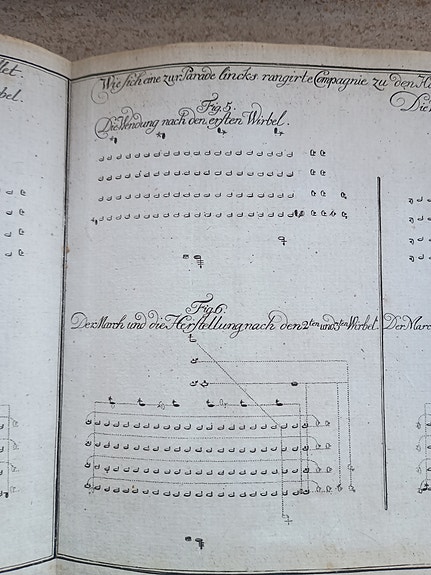 llet.
bel.
Wie sich eine zur Parade lincks rangirte Compagnie zu den
Fig. 5.
Die Wendung nach den ersten Wirbel.
Fig. 6.
Der March und die Herstellung nach den 2ten und 3ten Wirbel.
Der Marc